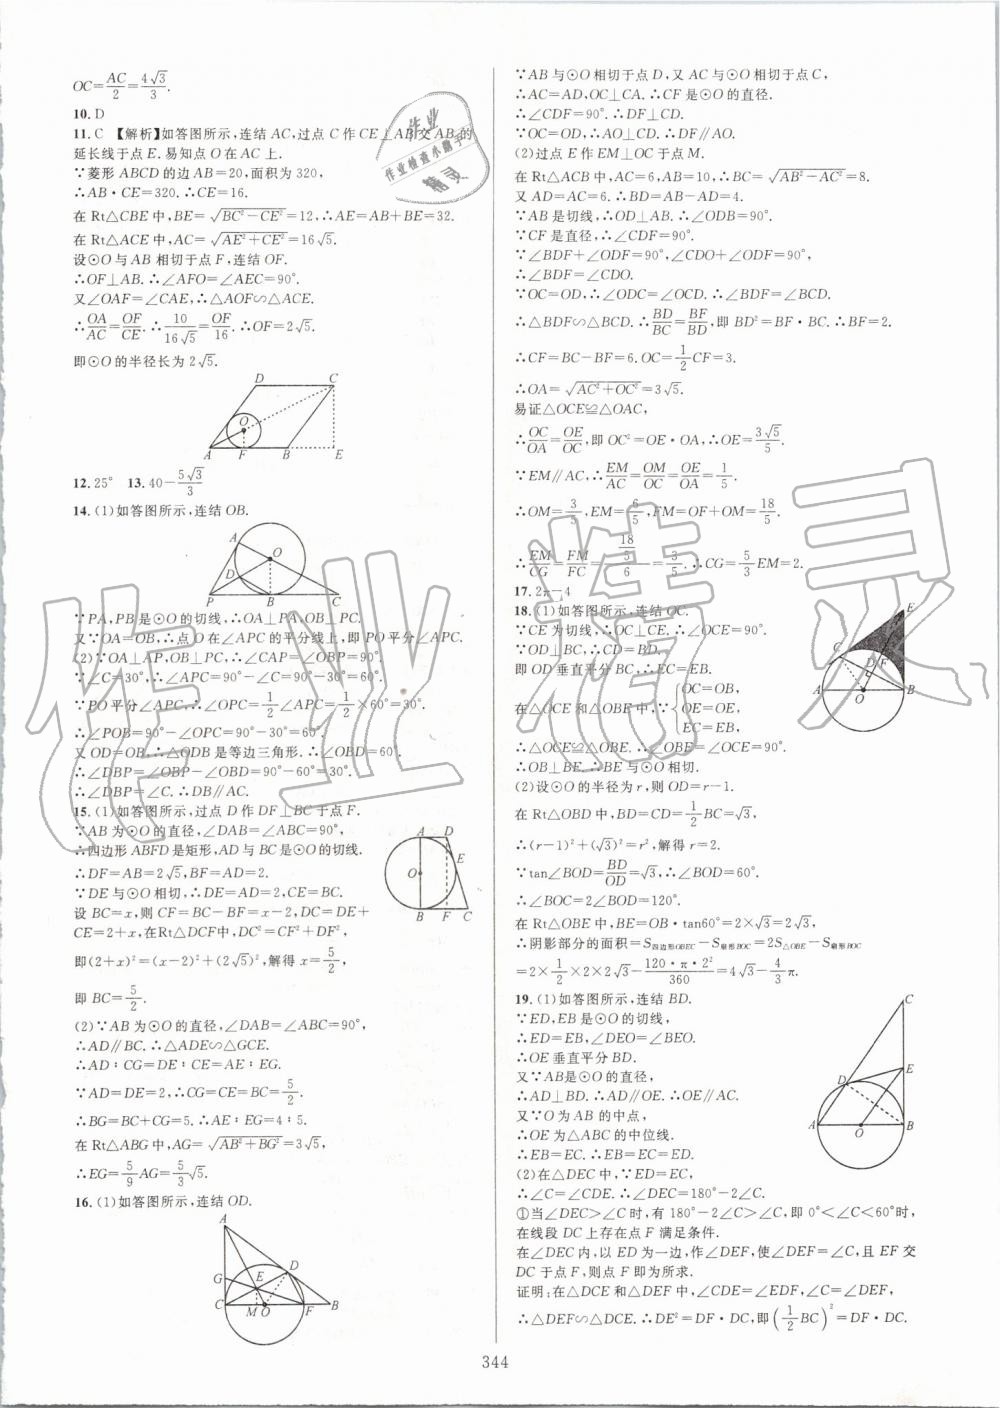 OC=AC/2=4√3/3.
10.D
11.C 【解析】如答图所示,连结AC,过点C作CE⊥AB交AB的
延长线于点E.易知点O在AC上.
∵菱形ABCD的边AB=20,面积为320,
∴AB·CE=320.∴CE=16.
在Rt△CBE中,BE=√(BC²-CE²)=12,∴AE=AB+BE=32.
在Rt△ACE中,AC=√(AE²+CE²)=16√5.
设⊙O与AB相切于点F,连结OF.
∴OF⊥AB.∴∠AFO=∠AEC=90°.
又∠OAF=∠CAE,∴△AOF∽△ACE.
∴OA/AC=OF/CE.∴10/16√5=OF/16.∴OF=2√5.
即⊙O的半径长为2√5.
D C
O
A F B E
12.25° 13.40-5√3/3
14.(1)如答图所示,连结OB.
A
O
D
P B C
∵PA,PB是⊙O的切线,∴OA⊥PA,OB⊥PC.
又∵OA=OB,∴点O在∠APC的平分线上,即PO平分∠APC.
(2)∵OA⊥AP,OB⊥PC,∴∠CAP=∠OBP=90°.
∵∠C=30°,∴∠APC=90°-∠C=90°-30°=60°.
∵PO平分∠APC,∴∠OPC=1/2∠APC=1/2×60°=30°.
∴∠POB=90°-∠OPC=90°-30°=60°.
又OD=OB,∴△ODB是等边三角形.∴∠OBD=60°.
∴∠DBP=∠OBP-∠OBD=90°-60°=30°.
∴∠DBP=∠C.∴DB∥AC.
15.(1)如答图所示,过点D作DF⊥BC于点F.
∵AB为⊙O的直径,∠DAB=∠ABC=90°.
∴四边形ABFD是矩形,AD与BC是⊙O的切线.
∴DF=AB=2√5,BF=AD=2.
∵DE与⊙O相切,∴DE=AD=2,CE=BC.
设BC=x,则CF=BC-BF=x-2,DC=DE+
CE=2+x,在Rt△DCF中,DC²=CF²+DF²,
即(2+x)²=(x-2)²+(2√5)²,解得x=5/2,
即BC=5/2.
A D
E
O
B F C
(2)∵AB为⊙O的直径,∠DAB=∠ABC=90°,
∴AD∥BC.∴△ADE∽△GCE.
∴AD∶CG=DE∶CE=AE∶EG.
∵AD=DE=2,∴CG=CE=BC=5/2.
∴BG=BC+CG=5.∴AE∶EG=4∶5.
在Rt△ABG中,AG=√(AB²+BG²)=3√5,
∴EG=5/9AG=5/3√5.
16.(1)如答图所示,连结OD.
A
G E D
C M O F B
∵AB与⊙O相切于点D,又AC与⊙O相切于点C,
∴AC=AD,OC⊥CA.∴CF是⊙O的直径.
∴∠CDF=90°.∴DF⊥CD.
∵OC=OD,∴AO⊥CD.∴DF∥AO.
(2)过点E作EM⊥OC于点M.
在Rt△ACB中,AC=6,AB=10,∴BC=√(AB²-AC²)=8.
又AD=AC=6.∴BD=AB-AD=4.
∵AB是切线,∴OD⊥AB.∴∠ODB=90°.
∵CF是直径,∴∠CDF=90°.
∵∠BDF+∠ODF=90°,∠CDO+∠ODF=90°.
∴∠BDF=∠CDO.
∵OC=OD,∴∠ODC=∠OCD.∴∠BDF=∠BCD.
∴△BDF∽△BCD.∴BD/BC=BF/BD,即BD²=BF·BC.∴BF=2.
∴CF=BC-BF=6.OC=1/2CF=3.
∴OA=√(AC²+OC²)=3√5.
易证△OCE≌△OAC,
∴OC/OA=OE/OC,即OC²=OE·OA,∴OE=3√5/5.
∵EM∥AC,∴EM/AC=OM/OC=OE/OA=1/5.
∴OM=3/5,EM=6/5,FM=OF+OM=18/5.
∴EM/CG=FM/FC=(18/5)/6=3/5.∴CG=5/3EM=2.
17.2π-4
18.(1)如答图所示,连结OC.
∵CE为切线,∴OC⊥CE.∴∠OCE=90°.
∵OD⊥BC,∴CD=BD.
即OD垂直平分BC,∴EC=EB.
在△OCE和△OBE中,∵{OC=OB,
OE=OE,
EC=EB.
∴△OCE≌△OBE.∴∠OBE=∠OCE=90°.
∴OB⊥BE.∴BE与⊙O相切.
E
C D F
A O B
(2)设⊙O的半径为r,则OD=r-1.
在Rt△OBD中,BD=CD=1/2BC=√3,
∴(r-1)²+(√3)²=r²,解得r=2.
∵tan∠BOD=BD/OD=√3,∴∠BOD=60°.
∴∠BOC=2∠BOD=120°.
在Rt△OBE中,BE=OB·tan60°=2×√3=2√3,
∴阴影部分的面积=S四边形OBEC-S扇形BOC=2S△OBE-S扇形BOC
=2×1/2×2×2√3-120·π·2²/360=4√3-4/3π.
19.(1)如答图所示,连结BD.
∵ED,EB是⊙O的切线,
∴ED=EB,∠DEO=∠BEO.
∴OE垂直平分BD.
又∵AB是⊙O的直径,
∴AD⊥BD.∴AD∥OE.∴OE∥AC.
又∵O为AB的中点,
∴OE为△ABC的中位线.
∴BE=EC.∴EB=EC=ED.
C
D E
A O B
(2)在△DEC中,∵ED=EC,
∴∠C=∠CDE.∴∠DEC=180°-2∠C.
①当∠DEC>∠C时,有180°-2∠C>∠C,即0°<∠C<60°时,
在线段DC上存在点F满足条件.
在∠DEC内,以ED为一边,作∠DEF,使∠DEF=∠C,且EF交
DC于点F,则点F即为所求.
证明:在△DCE和△DEF中,∠CDE=∠EDF,∠C=∠DEF,
∴△DEF∽△DCE.∴DE²=DF·DC,即(1/2BC)²=DF·DC.
344
作业
作业检查小助手
精灵
作业精灵